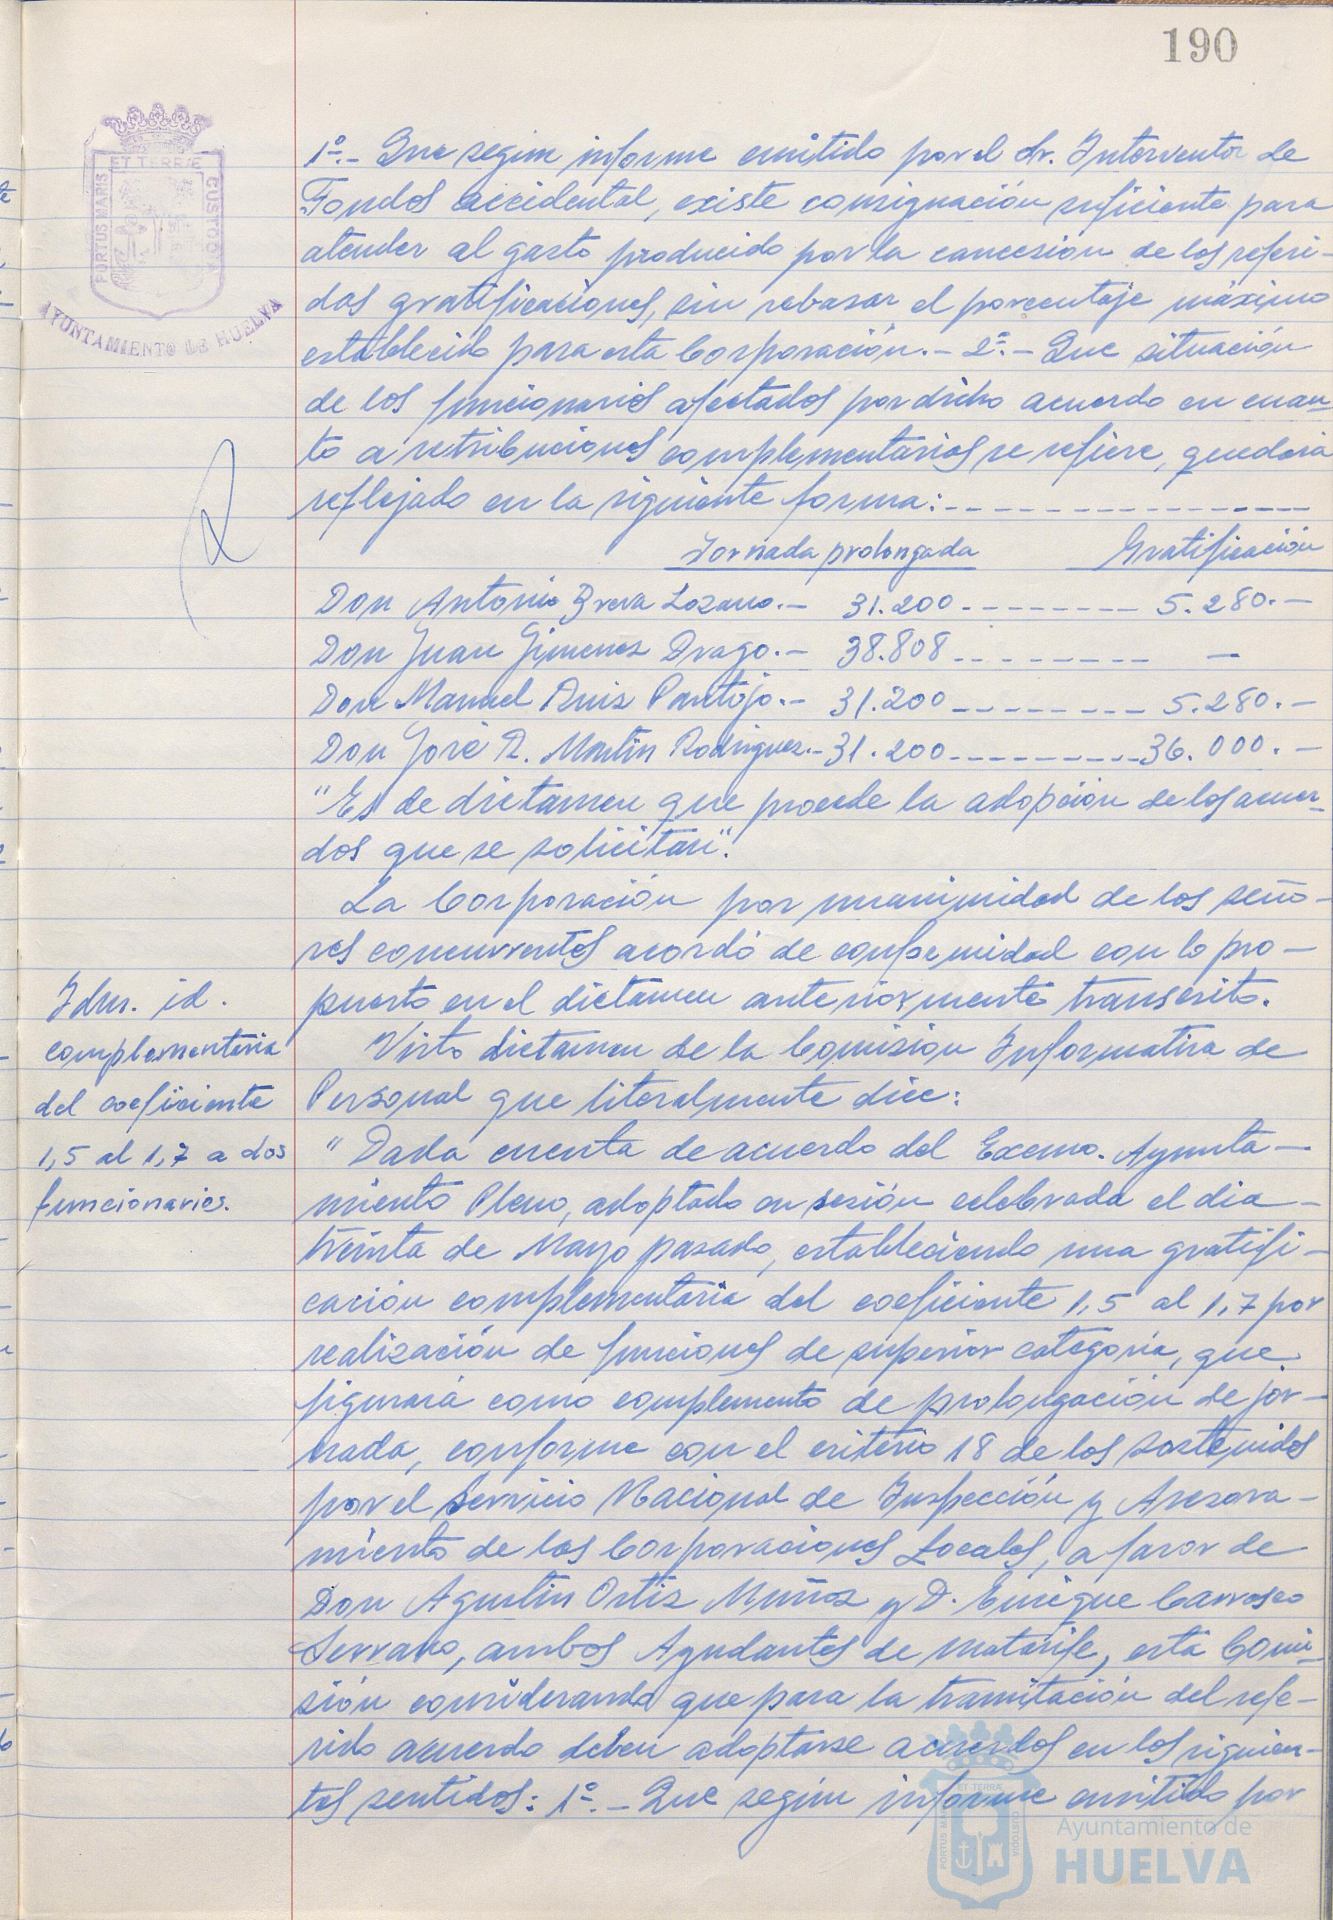 190
ET TERRÆ
PORTUS MARIS
CUSTODIA
AYUNTAMIENTO DE HUELVA
1º.- Que segun informe emitido por el Sr. Interventor de
Fondos accidental, existe consignación suficiente para
atender al gasto producido por la concesion de las referi-
das gratificaciones, sin rebasar el porcentaje máximo
establecido para esta Corporación.- 2º.- Que situación
de los funcionarios afectados por dicho acuerdo en cuan-
to a retribuciones complementarias se refiere, quedaria
reflejado en la siguiente forma:
Jornada prolongada Gratificación
Don Antonio Breva Lozano.- 31.200 5.280.-
Don Juan Gimenez Drago.- 38.808 -
Don Manuel Ruiz Pantoja.- 31.200 5.280.-
Don José R. Martin Rodriguez.- 31.200 36.000.-
"Es de dictamen que procede la adopción de los acuer-
dos que se solicitan".
La Corporación por unanimidad de los seño-
res concurrentes acordó de conformidad con lo pro-
puesto en el dictamen anteriormente transcrito.
Idm. id.
complementaria
del coeficiente
1,5 al 1,7 a dos
funcionarios.
Visto dictamen de la Comision Informativa de
Personal que literalmente dice:
"Dada cuenta de acuerdo del Excmo. Ayunta-
miento Pleno, adoptado en sesión celebrada el dia
treinta de Mayo pasado, estableciendo una gratifi-
cación complementaria del coeficiente 1,5 al 1,7 por
realización de funciones de superior categoria, que
figurará como complemento de prolongación de jor-
nada, conforme con el criterio 18 de los sostenidos
por el Servicio Nacional de Inspección y Asesora-
miento de las Corporaciones Locales, a favor de
Don Agustin Ortiz Muñoz y D. Enrique Carrasco
Serrano, ambos Ayudantes de matarife, esta Comi-
sión considerando que para la tramitación del refe-
rido acuerdo deben adoptarse acuerdos en los siguien-
tes sentidos: 1º.- Que segun informe emitido por
ET TERRÆ
PORTUS MARIS
CUSTODIA
Ayuntamiento de
HUELVA